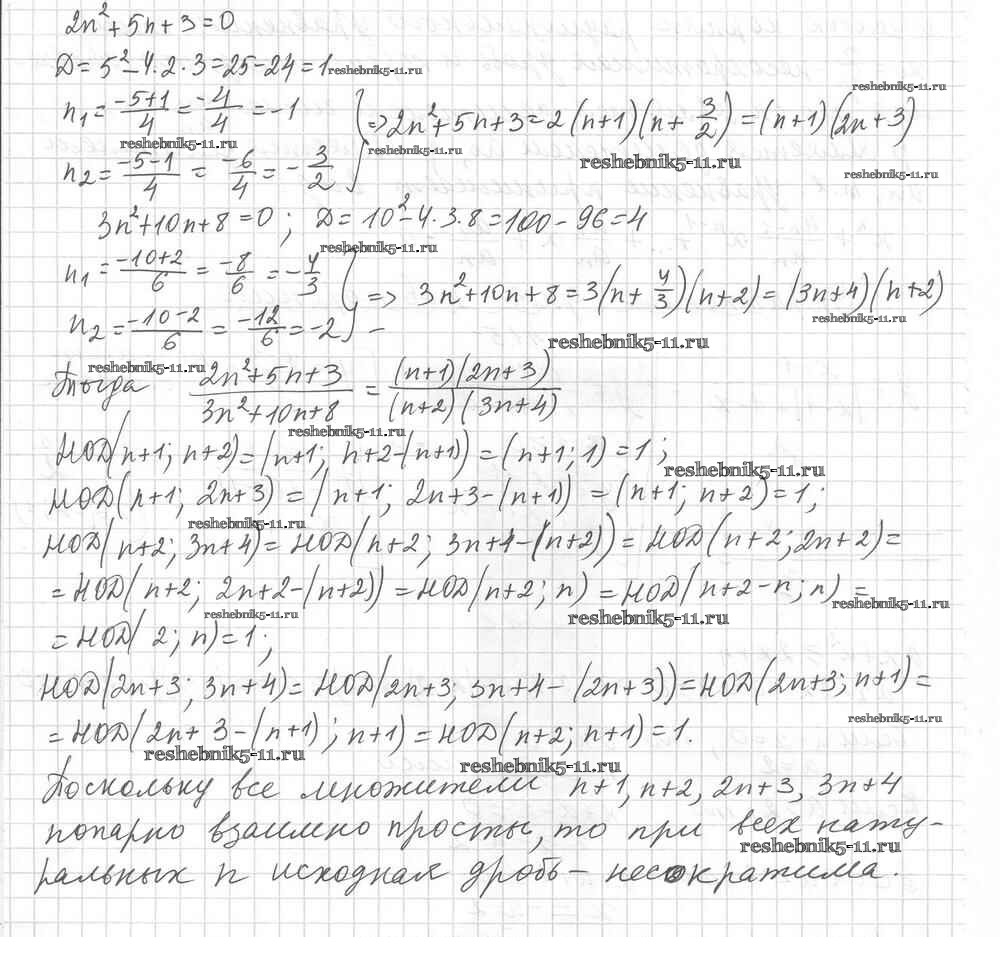 2n²+5n+3=0
D=5²-4·2·3=25-24=1 reshebnik5-11.ru
n₁=(-5+1)/4=-4/4=-1
reshebnik5-11.ru
n₂=(-5-1)/4=-6/4=-3/2
} => 2n²+5n+3=2(n+1)(n+3/2)=(n+1)(2n+3)
reshebnik5-11.ru
reshebnik5-11.ru
reshebnik5-11.ru
reshebnik5-11.ru
3n²+10n+8=0; D=10²-4·3·8=100-96=4
reshebnik5-11.ru
n₁=(-10+2)/6=-8/6=-4/3
n₂=(-10-2)/6=-12/6=-2
} => 3n²+10n+8=3(n+4/3)(n+2)=(3n+4)(n+2)
reshebnik5-11.ru
reshebnik5-11.ru
reshebnik5-11.ru
Тогда (2n²+5n+3)/(3n²+10n+8)=((n+1)(2n+3))/((n+2)(3n+4))
reshebnik5-11.ru
НОД(n+1; n+2)=(n+1; n+2-(n+1))=(n+1; 1)=1;
reshebnik5-11.ru
НОД(n+1; 2n+3)=(n+1; 2n+3-(n+1))=(n+1; n+2)=1;
reshebnik5-11.ru
НОД(n+2; 3n+4)=НОД(n+2; 3n+4-(n+2))=НОД(n+2; 2n+2)=
=НОД(n+2; 2n+2-(n+2))=НОД(n+2; n)=НОД(n+2-n; n)=
reshebnik5-11.ru
reshebnik5-11.ru
reshebnik5-11.ru
=НОД(2; n)=1;
НОД(2n+3; 3n+4)=НОД(2n+3; 3n+4-(2n+3))=НОД(2n+3; n+1)=
reshebnik5-11.ru
=НОД(2n+3-(n+1); n+1)=НОД(n+2; n+1)=1.
reshebnik5-11.ru
reshebnik5-11.ru
Поскольку все множители n+1, n+2, 2n+3, 3n+4
попарно взаимно просты, то при всех нату-
reshebnik5-11.ru
ральных n исходная дробь – несократима.